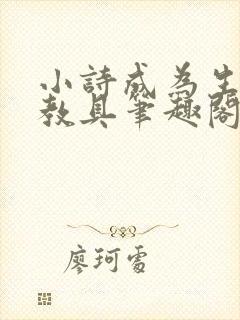 小詩成為生
教具筆趣閣
廖珂雪